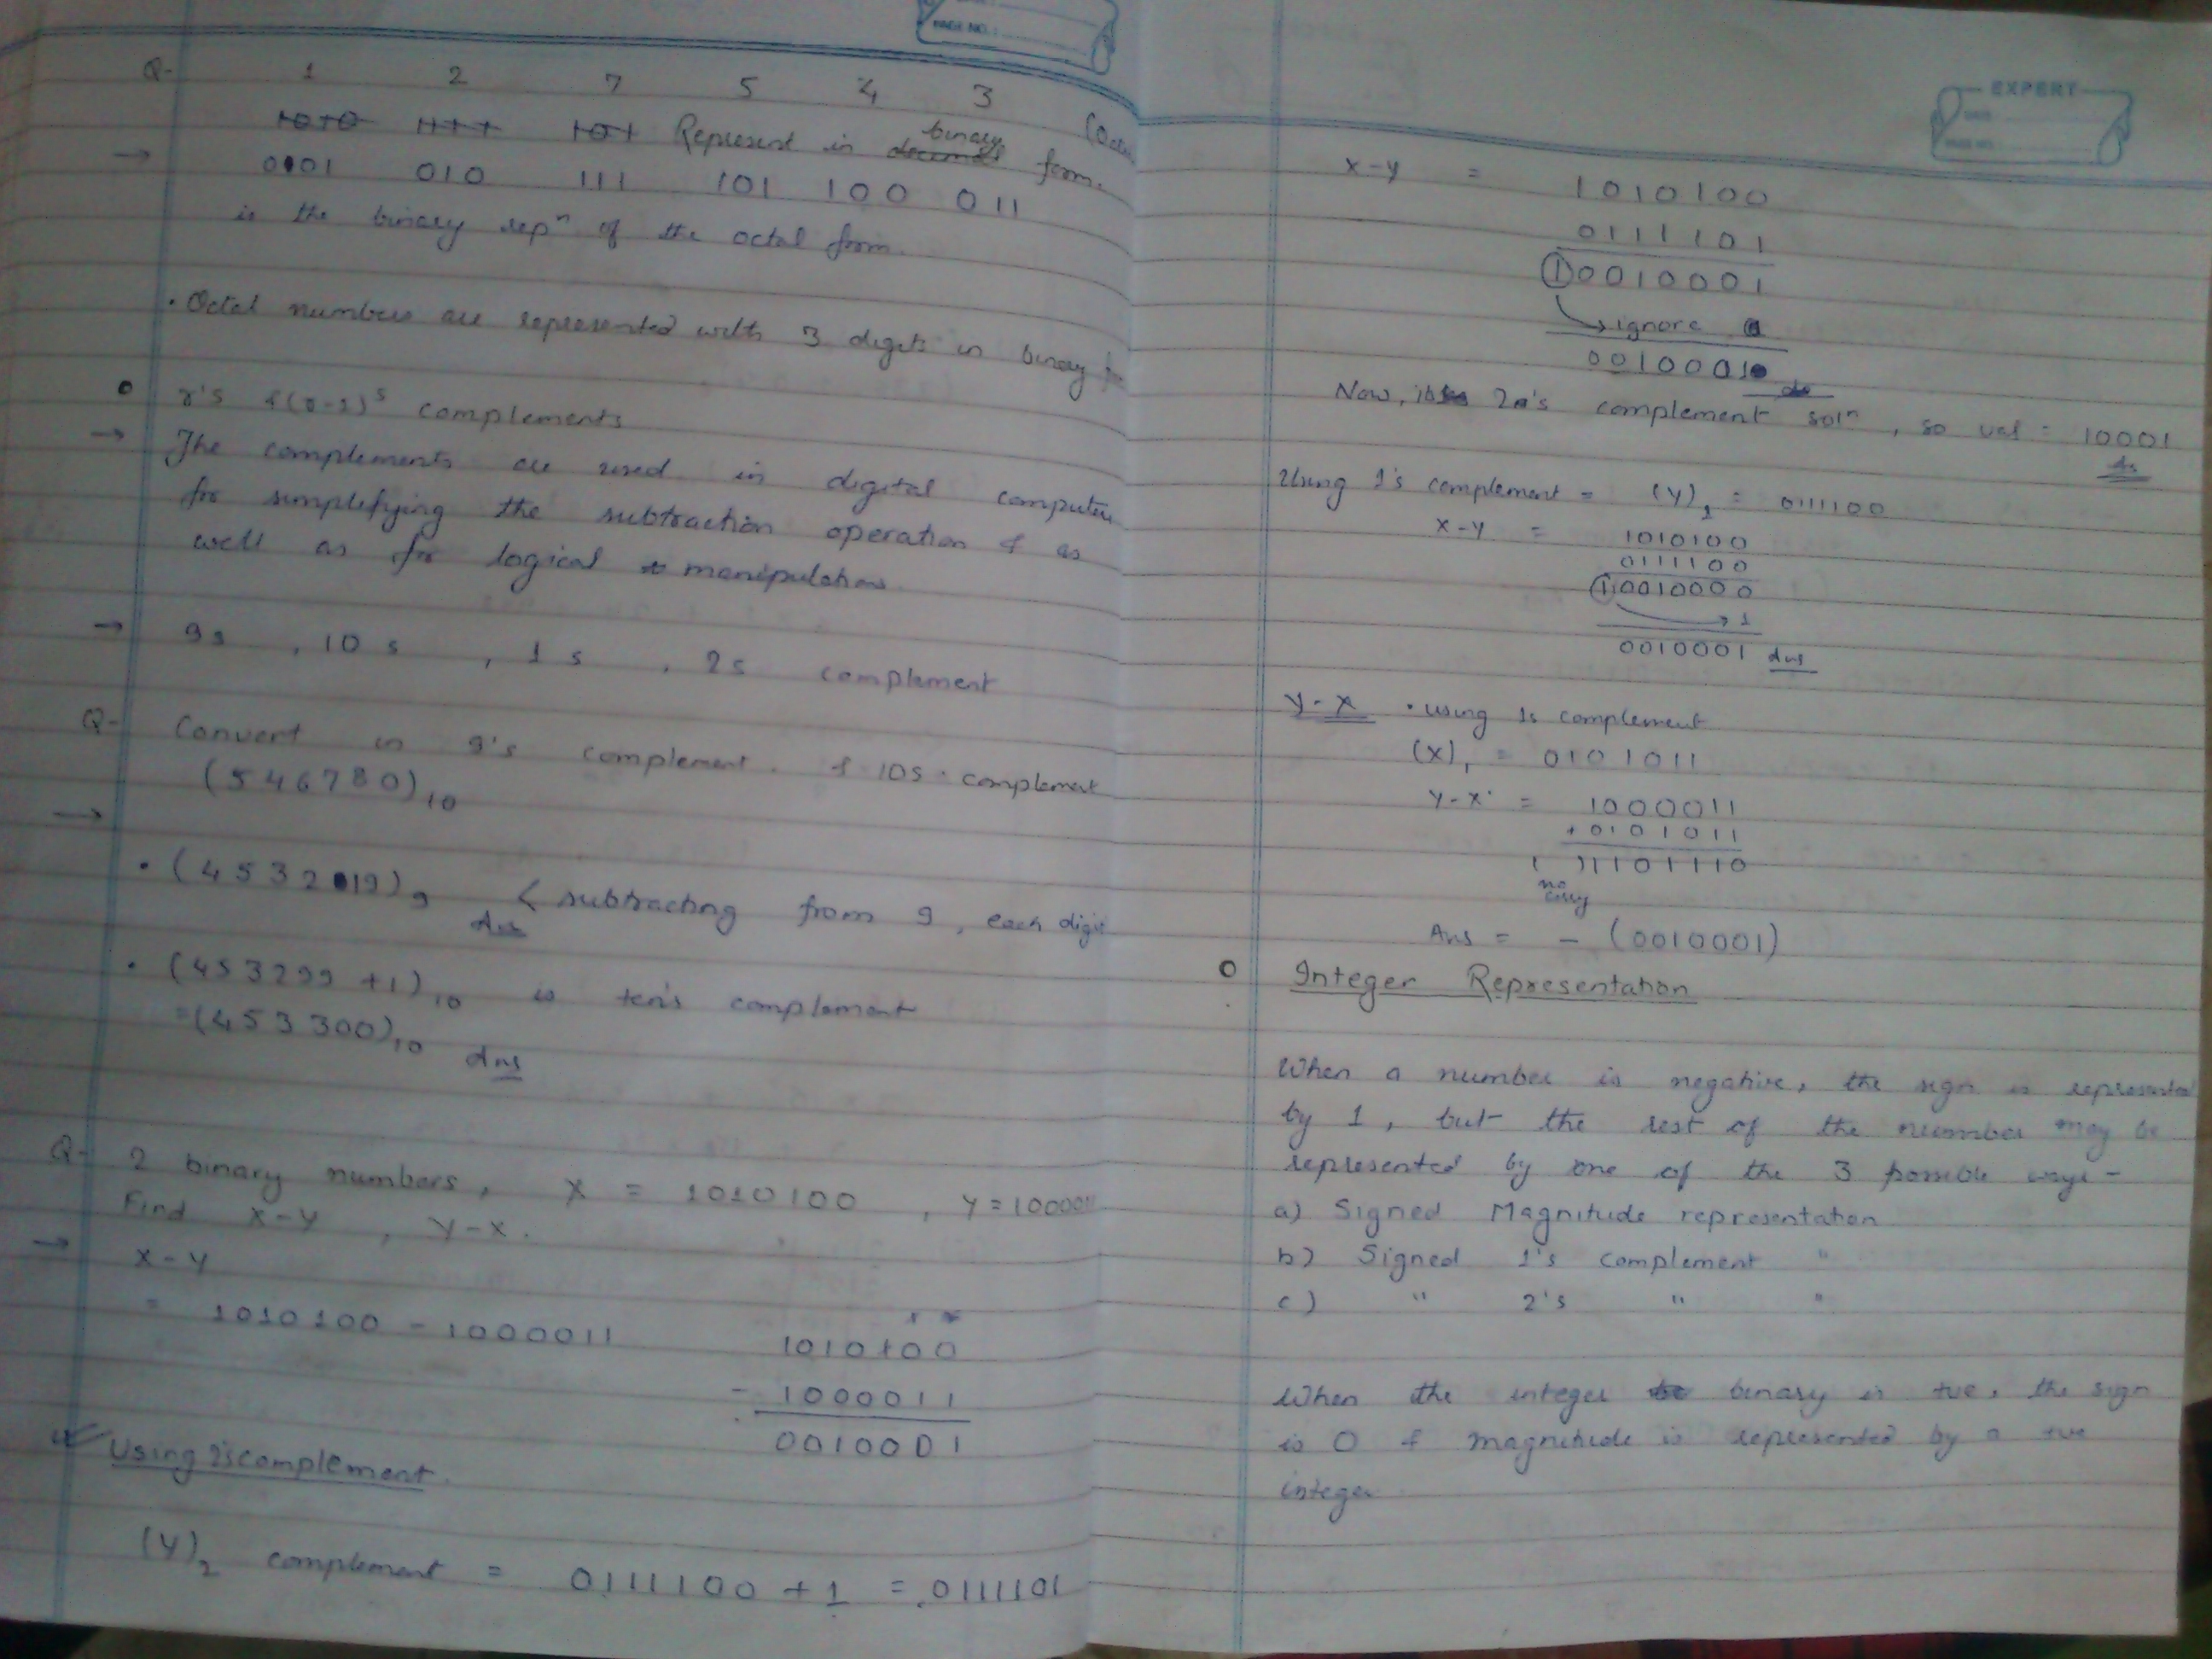 PAGE NO.:
Q- 1 2 7 5 4 3 (Octa
1010 1111 101 Represent in decimal binary form.
→ 0001 010 111 101 100 011
is the binary repⁿ of the octal form.
. Octal numbers are represented with 3 digits in binary
o r's & (r-1)ˢ complements
→ The complements are used in digital computers
for simplifying the subtraction operation & as
well as for logical manipulations.
→ 9s , 10 s , 1 s , 2s complement
Q- Convert in 9's complement. & 10s complement
(546780)₁₀
→
. (4532 19)₉ < subtracting from 9, each digit
Ans
. (453299 +1)₁₀ is ten's complement
=(453300)₁₀ Ans
Q- 2 binary numbers, X = 1010100 , Y = 1000011
Find X-Y , Y-X.
→ X-Y
= 1010100 - 1000011
1010100
- 1000011
0010001
Using 2's complement.
(Y)₂ complement = 0111100 + 1 = 0111101
EXPERT
PAGE NO.
X-Y = 1010100
0111101
10010001
→ ignore
0010001
Now, its 2's complement solⁿ, so val = 10001
Ans
Using 1's complement = (Y)₁ = 0111100
X-Y = 1010100
0111100
10010000
→ 1
0010001 Ans
Y-X . using 1s complement
(X)₁ = 0101011
Y-X = 1000011
+0101011
1101110
no carry
Ans = - (0010001)
o Integer Representation
When a number is negative, the sign is represented
by 1, but the rest of the number may be
represented by one of the 3 possible ways -
a) Signed Magnitude representation
b) Signed 1's complement "
c) " 2's " "
When the integer binary is +ve, the sign
is 0 & magnitude is represented by a +ve
integer